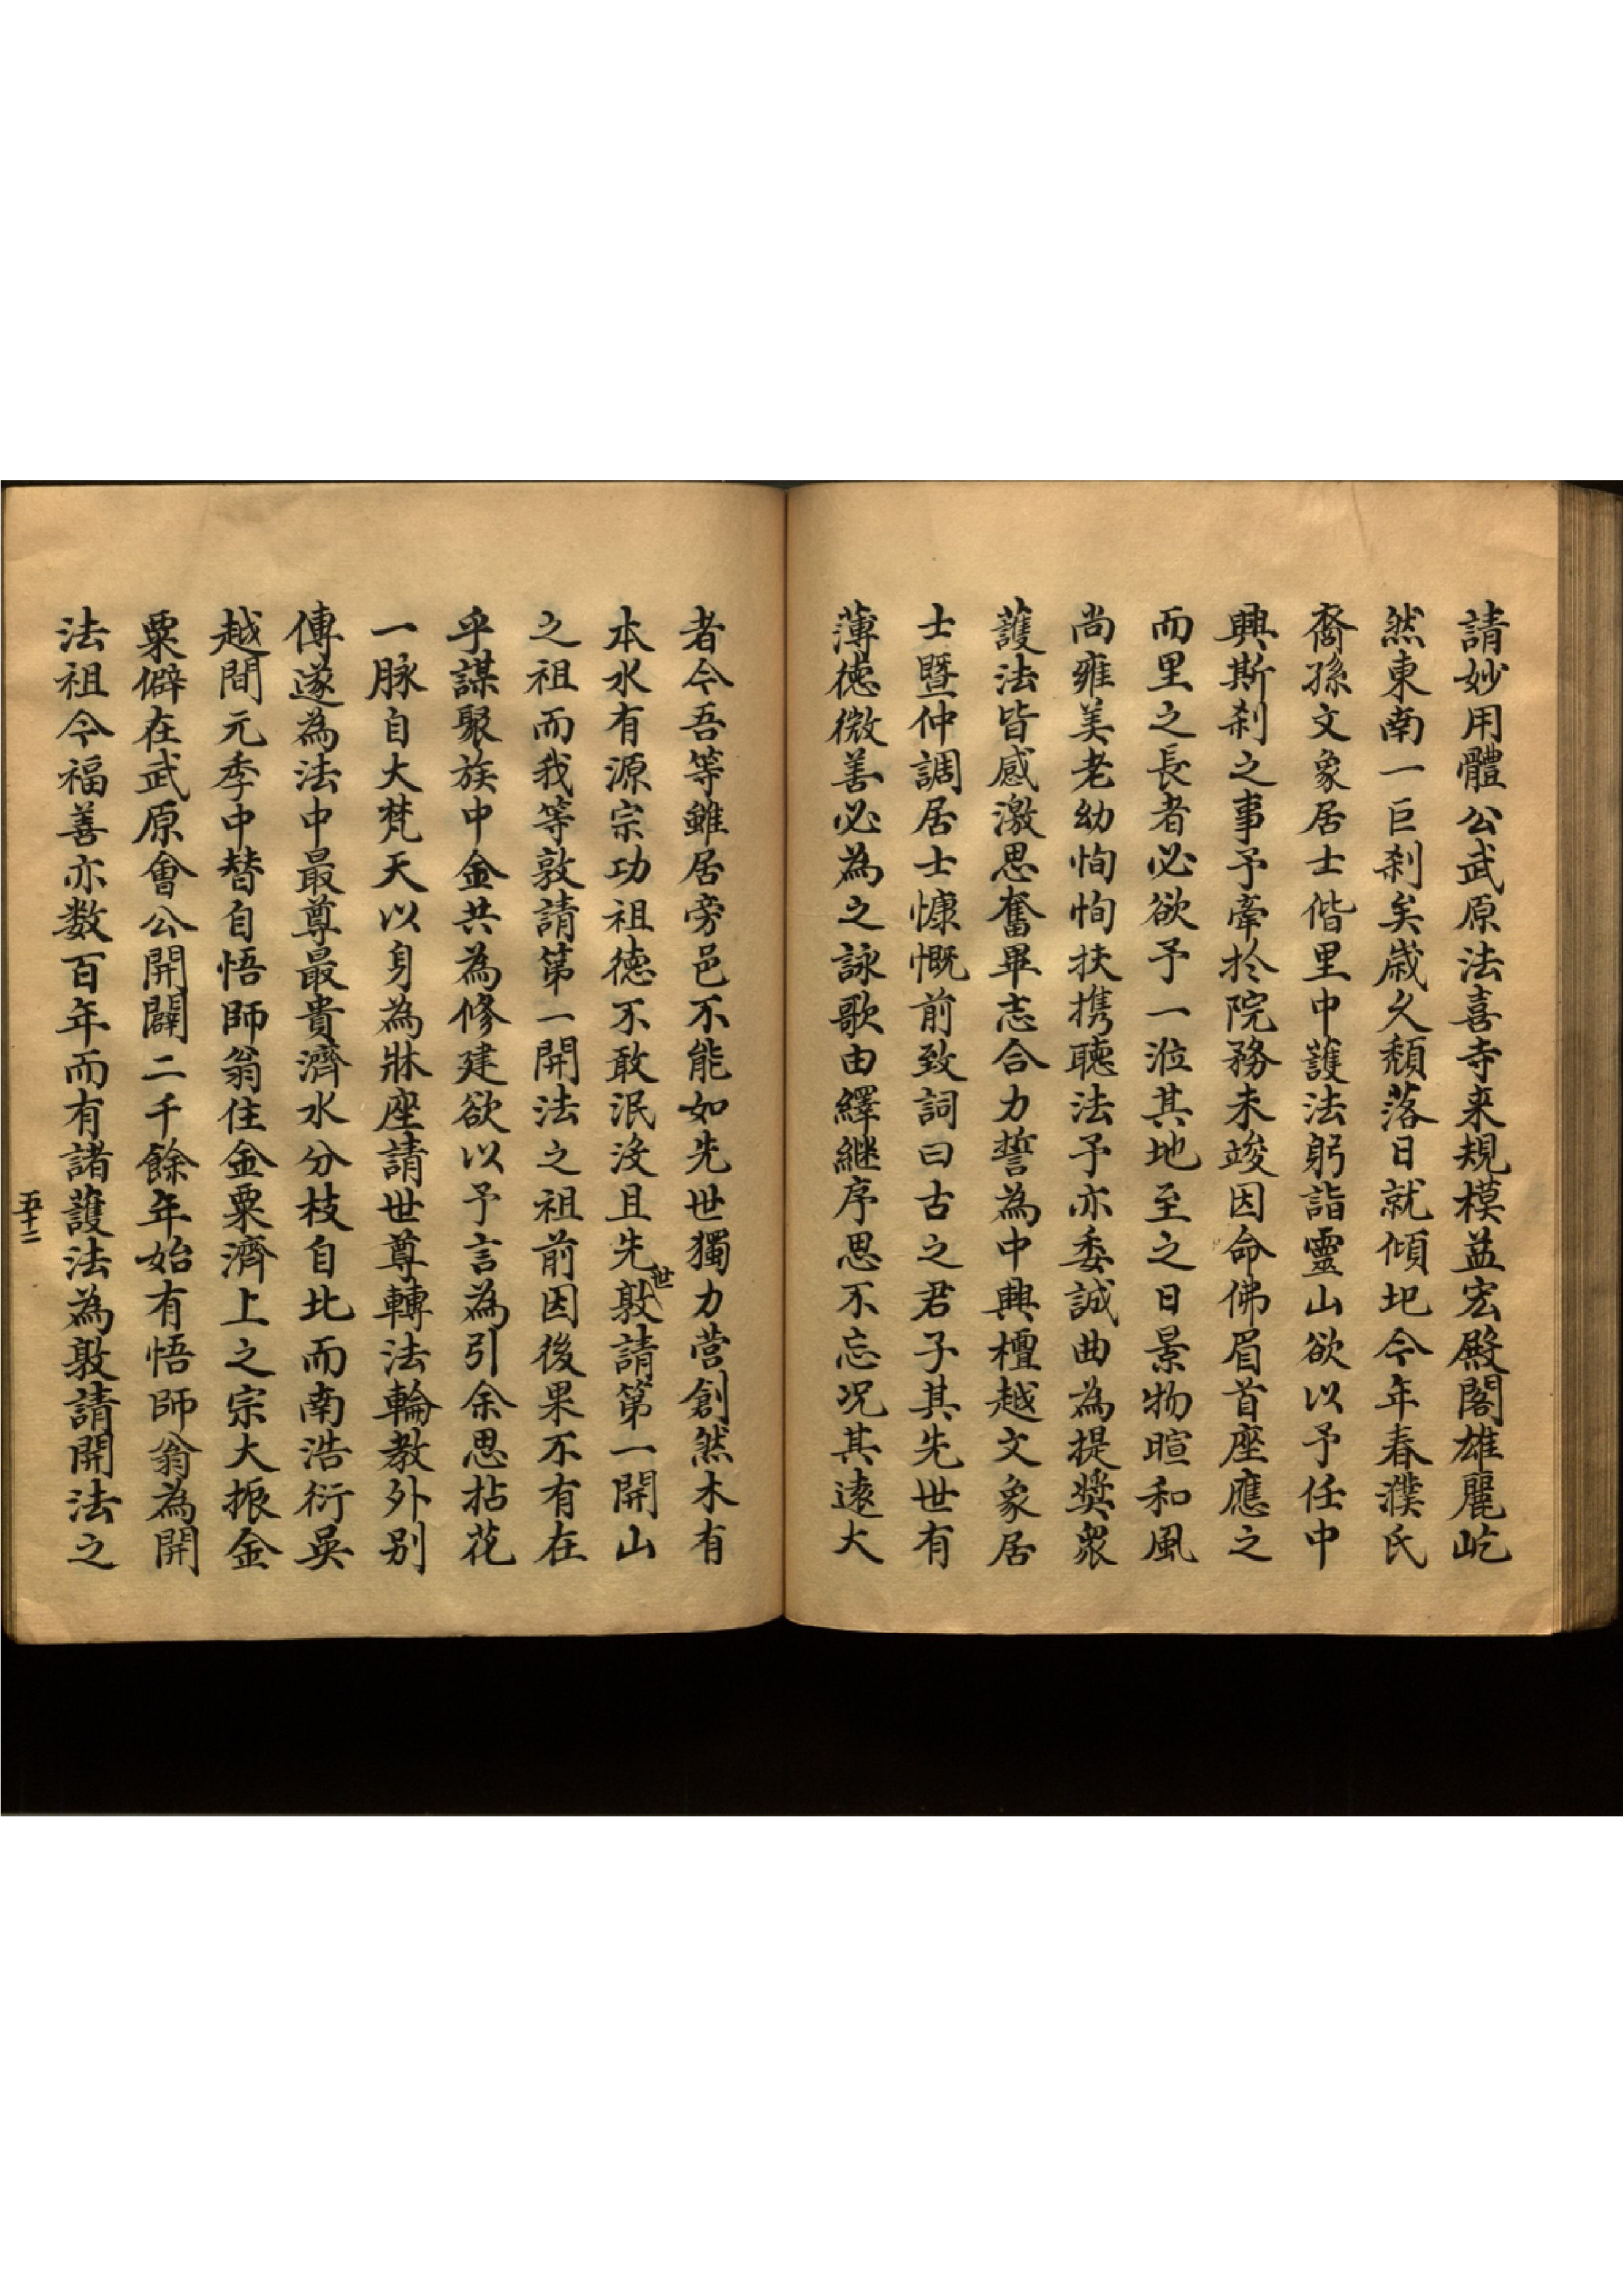 請妙用體公武原法喜寺来規模益宏殿閣雄麗屹
然東南一巨刹矣歲久頹落日就傾圯今年春濮氏
裔孫文象居士偕里中護法躬詣靈山欲以予任中
興斯刹之事予牽於院務未竣因命佛眉首座應之
而里之長者必欲予一涖其地至之日景物暄和風
尚雍美老幼恂恂扶携聽法予亦委誠曲為提奨衆
護法皆感激思奮畢志合力誓為中興檀越文象居
士暨仲調居士慷慨前致詞曰古之君子其先世有
薄徳微善必為之詠歌由繹継序思不忘况其遠大
者今吾等雖居旁邑不能如先世獨力营創然木有
本水有源宗功祖徳不敢泯沒且先世敦請第一開山
之祖而我等敦請第一開法之祖前因後果不有在
乎謀聚族中金共為修建欲以予言為引余思拈花
一脉自大梵天以身為牀座請世尊轉法輪教外别
傳遂為法中最尊最貴濟水分枝自北而南浩衍吳
越間元季中替自悟師翁住金粟濟上之宗大振金
粟僻在武原會公開闢二千餘年始有悟師翁為開
法祖今福善亦数百年而有諸護法為敦請開法之
五十二